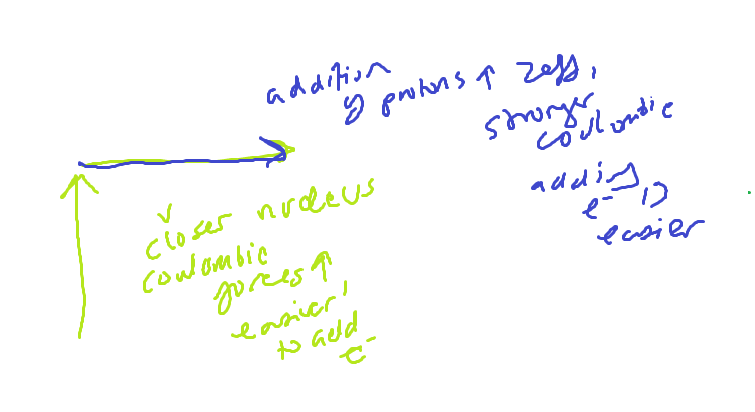 addition
of protons ↑ Zeff,
stronger
coulombic
adding
e⁻ is
easier
closer nucleus
coulombic
forces ↑
easier
to add
e⁻